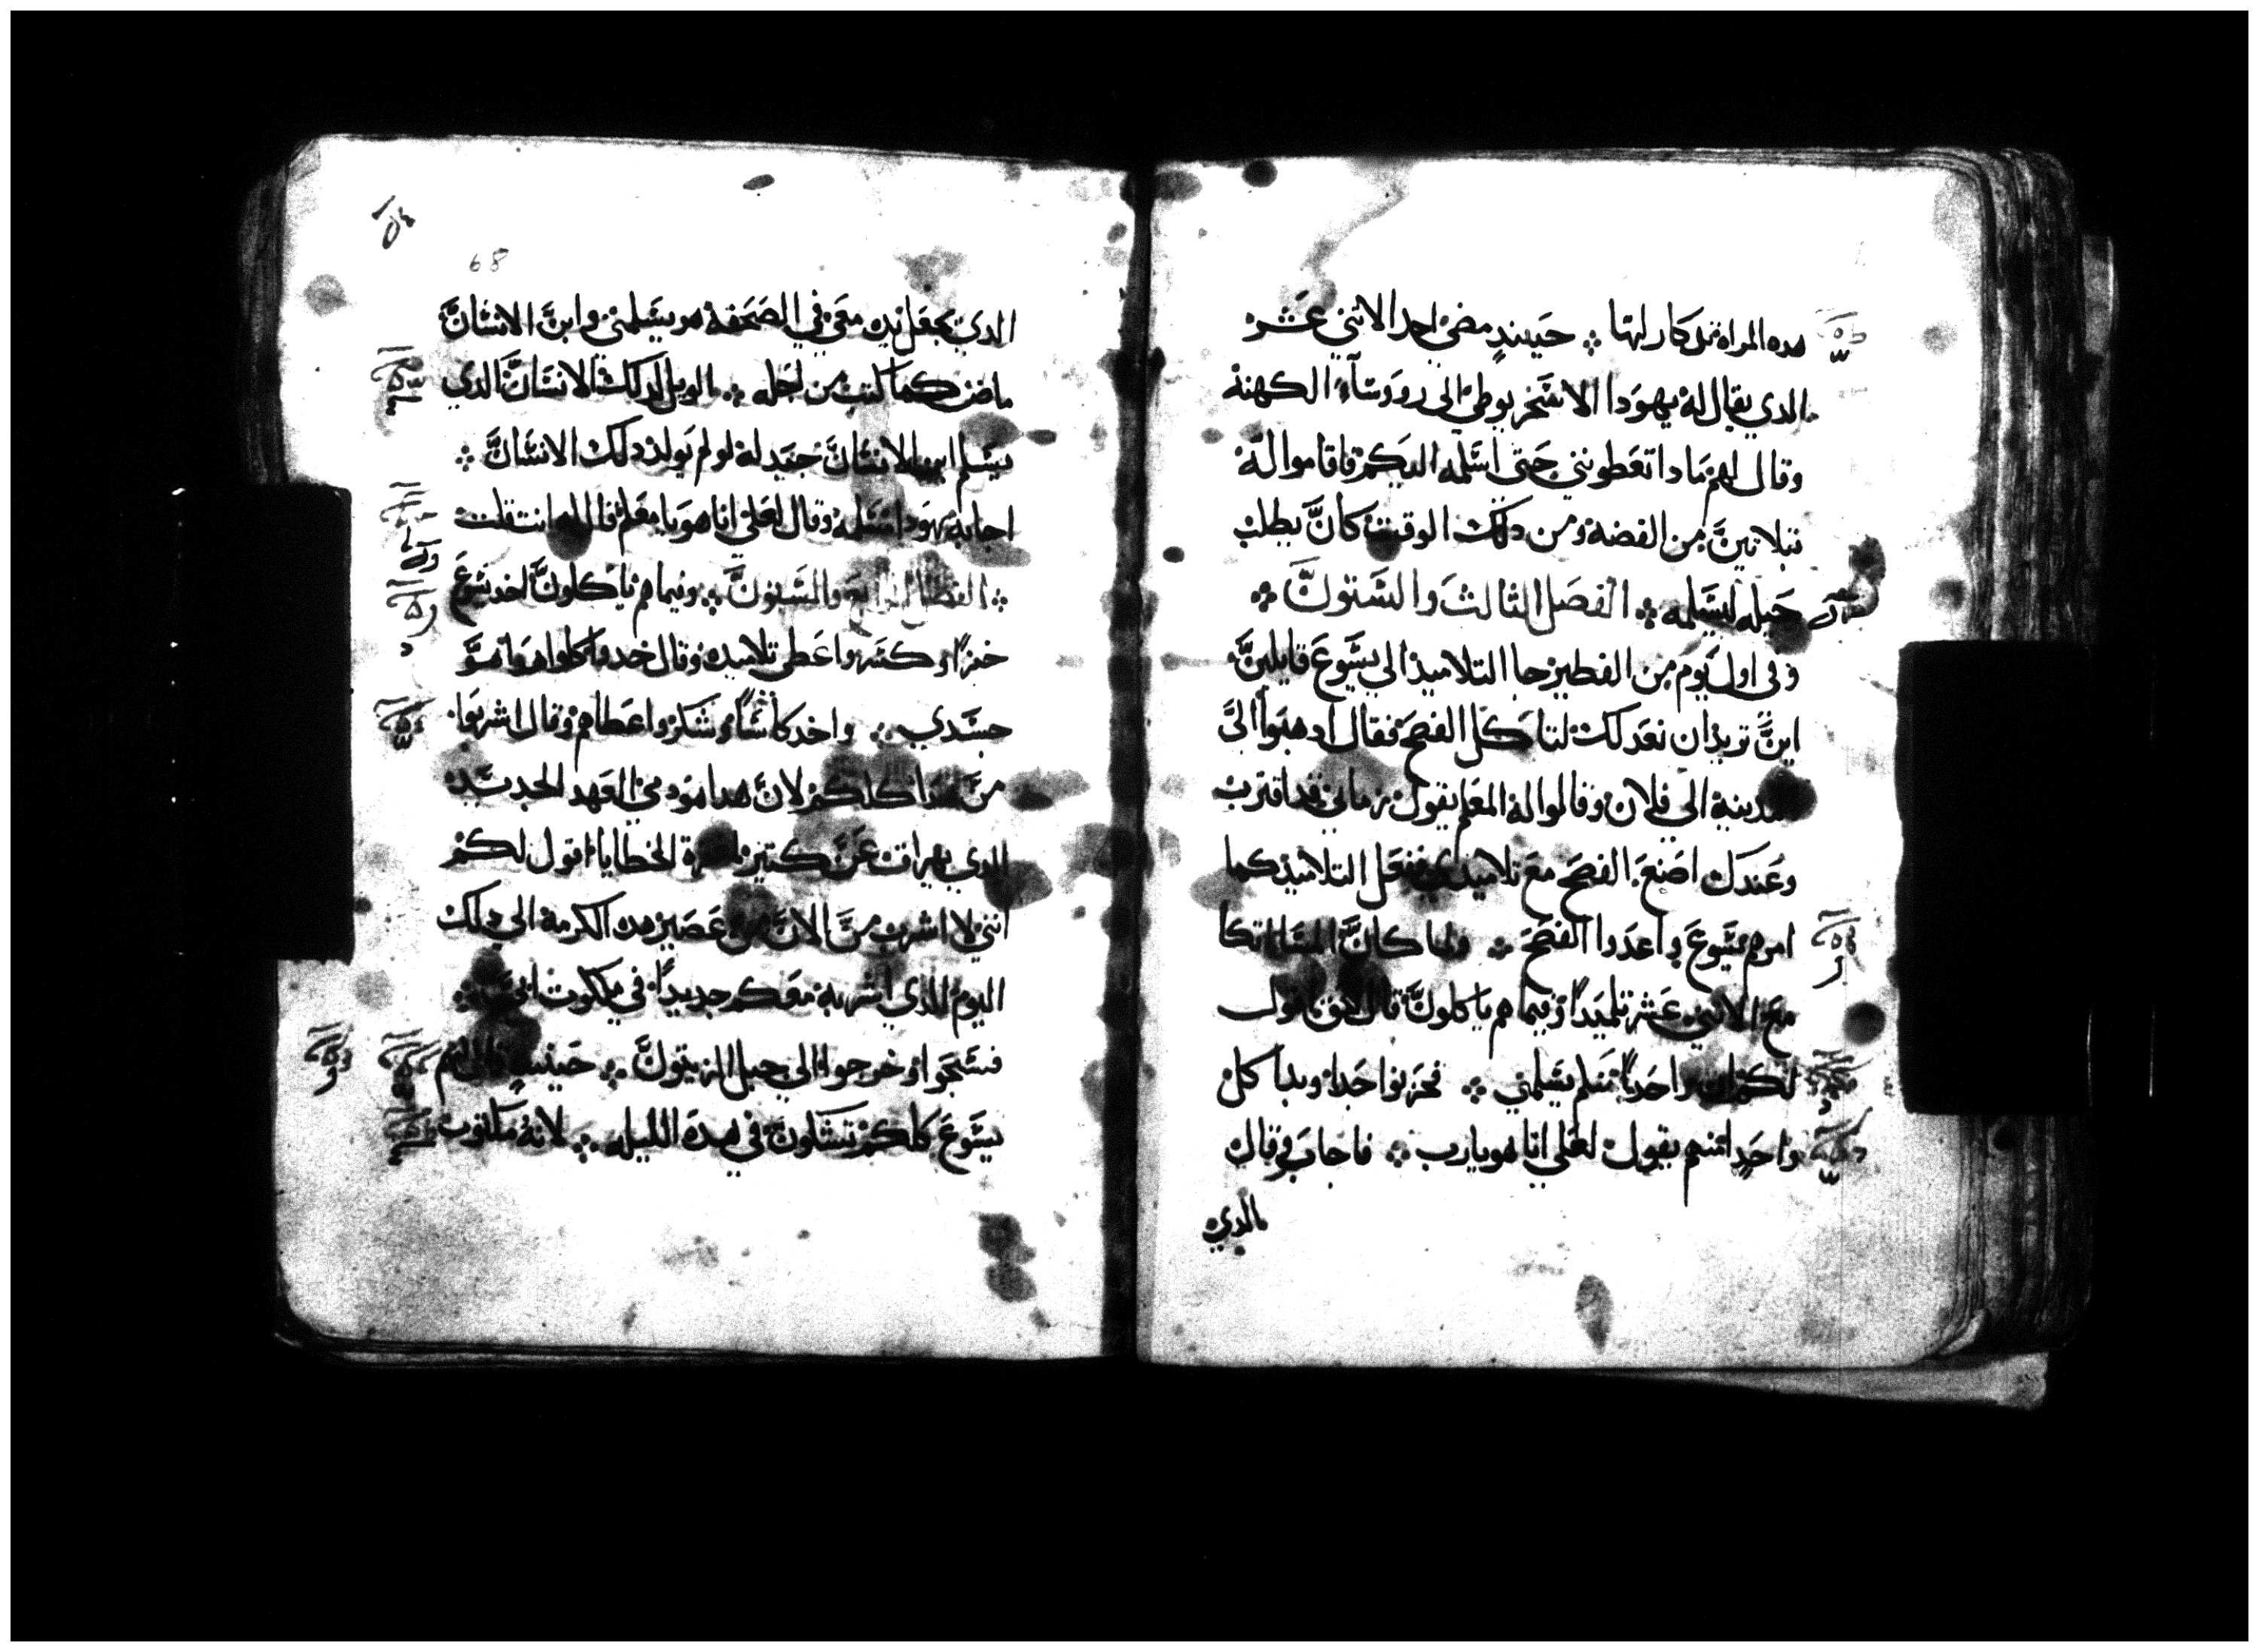 هده المراة تدكار لها ⁘ حينيدٍ مضى احد الاثنى عشر
الدي يقال له يهودا الاسخريوطي الى رووسآء الكهنة
وقال لهم مادا تعطونني حتى اسلمه اليكم فاقاموا له
بتلاتين من الفضة ومن دلك الوقت كان يطلب
حيله ليسلمه ⁘ الفصل الثالث والستون ⁘
وفي اول يوم من الفطير جا التلاميذ الى يسوع قايلين
اين تريد ان نعد لك لتاكل الفصح فقال ادهبوا الى
المدينة الى فلان وقالوا له المعلم يقول زماني قد اقترب
وعندك اصنع الفصح مع تلاميدي ففعل التلاميذ كما
امرهم يسوع واعدوا الفصح ⁘ ولما كان المسا اتكا
مع الاثنى عشر تلميدًا وفيما هم ياكلون قال الحق اقول
لكم ان واحدًا منكم يسلمني ⁘ فحزنوا جدا وبدا كل
واحد منهم يقول لعلي انا هو يارب ⁘ فاجاب وقال
الدي
٥٤
68
الدي يجعل يده معي في الصحفة هو يسلمني وابن الانسان
ماض كما كتب من اجله ⁘ الويل لدلك الانسان الدي
يسلم ابن الانسان جيد له لو لم يولد دلك الانسان ⁘
اجابه يهودا مسلمه وقال لعلي انا هو يا معلم قال له انت قلت
⁘ الفصل الرابع والستون ⁘ وفيما هم ياكلون اخد يسوع
خبزًا وكسر واعطى تلاميده وقال خدوا كلوا هدا هو
جسدي ⁘ واخد كاسًا وشكر واعطاهم وقال اشربوا
من هدا كلكم لان هدا هو دمي العهد الجديد
الدي يهراق عن كتير لمغفرة الخطايا اقول لكم
انني لا اشرب من الان من عصير هده الكرمة الى دلك
اليوم الدي اشربه معكم جديدًا في ملكوت ابي ⁘
فسبحوا وخرجوا الى جبل الزيتون ⁘ حينيدٍ قال لهم
يسوع كلكم تشكون في هده الليله ⁘ لانه مكتوب